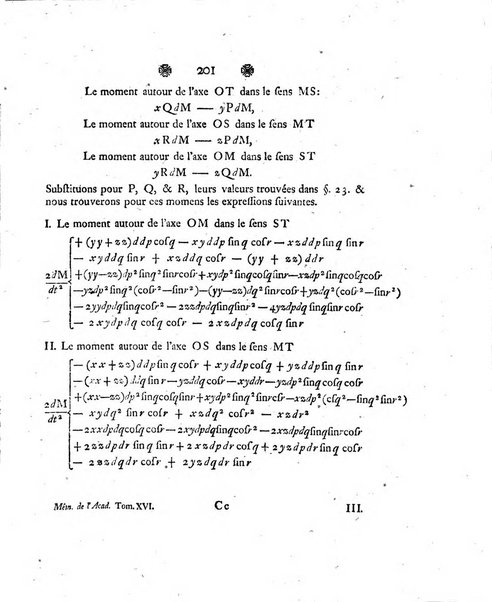 201
Le moment autour de l'axe OT dans le ſens MS:
xQdM — yPdM,
Le moment autour de l'axe OS dans le ſens MT
xRdM — zPdM,
Le moment autour de l'axe OM dans le ſens ST
yRdM — zQdM.
Subſtituons pour P, Q, & R, leurs valeurs trouvées dans §. 23. &
nous trouverons pour ces momens les expreſſions ſuivantes.
I. Le moment autour de l'axe OM dans le ſens ST
+ (yy + zz) ddp coſq — xyddp ſinq coſr — xzddp ſinq ſinr
— xyddq ſinr + xzddq coſr — (yy + zz) ddr
2dM/dt² { +(yy—zz)dp² ſinq² ſinrcoſr+xydp² ſinqcoſqſinr—xzdp² ſinqcoſqcoſr
—yzdp² ſinq² (coſr²—ſinr²)—(yy—zz)dq² ſinrcoſr+yzdq² (coſr²—ſinr²)
—2yydpdq ſinqcoſr² — 2zzdpdq ſinqſinr² — 4yzdpdq ſinqſinrcoſr
— 2xydpdq coſqcoſr — 2xzdpdq coſq ſinr
II. Le moment autour de l'axe OS dans le ſens MT
— (xx + zz) ddp ſinqcoſr + xyddp coſq + yzddp ſinqſinr
—(xx + zz)ddq ſinr—yzddq coſr—xyddr—yzdp² ſinqcoſqcoſr
2dM/dt² { +(xx—zz)dp² ſinqcoſqſinr+xydp² ſinq² ſinrcoſr—xzdp² (coſq²—ſinq² ſinr²)
— xydq² ſinrcoſr + xzdq² coſr² — xzdr²
—2xxdpdqcoſqcoſr—2xydpdqſinqcoſr²—2xzdpdqſinqſinrcoſr
+2zzdpdr ſinqſinr + 2xzdpdr coſq + 2yzdpdr ſinqcoſr
— 2zzdqdr coſr + 2yzdqdr ſinr
Mém. de l'Acad. Tom. XVI. Cc III.